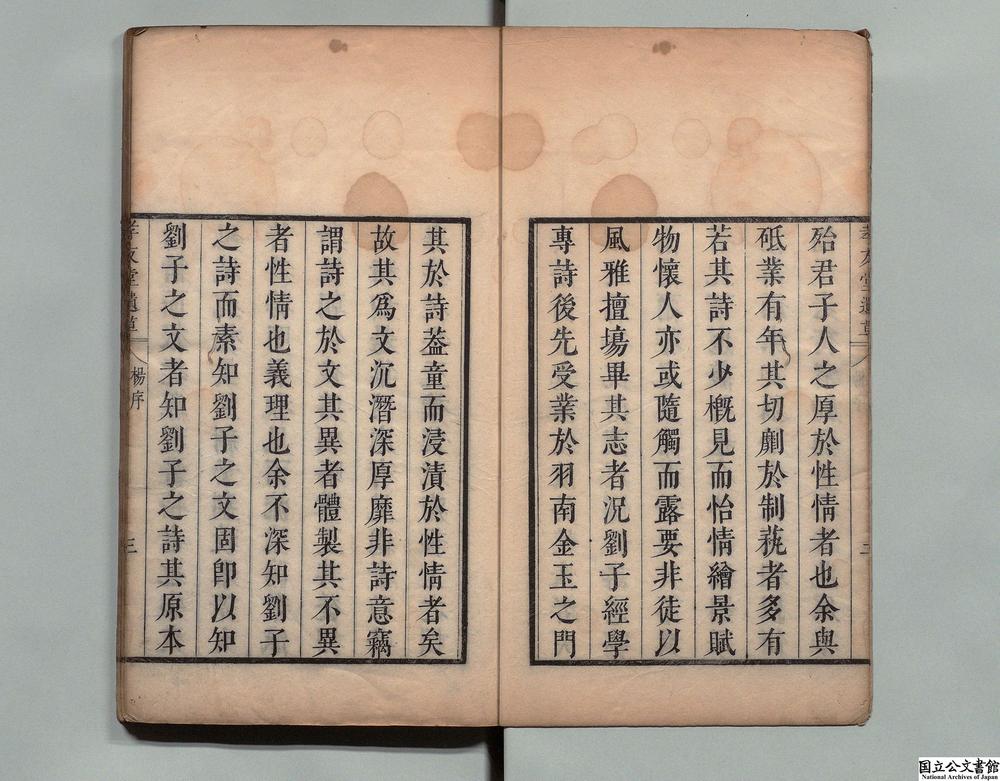 殆君子人之厚於性情者也余與
砥業有年其切劘於制蓺者多有
若其詩不少槪見而怡情繪景賦
物懷人亦或隨觸而露要非徒以
風雅擅塲畢其志者況劉子經學
專詩後先受業於羽南金玉之門
其於詩葢童而浸漬於性情者矣
故其爲文沉潛深厚靡非詩意竊
謂詩之於文其異者體製其不異
者性情也義理也余不深知劉子
之詩而素知劉子之文固卽以知
劉子之文者知劉子之詩其原本
孝友堂遺草
楊序
三
国立公文書館
National Archives of Japan